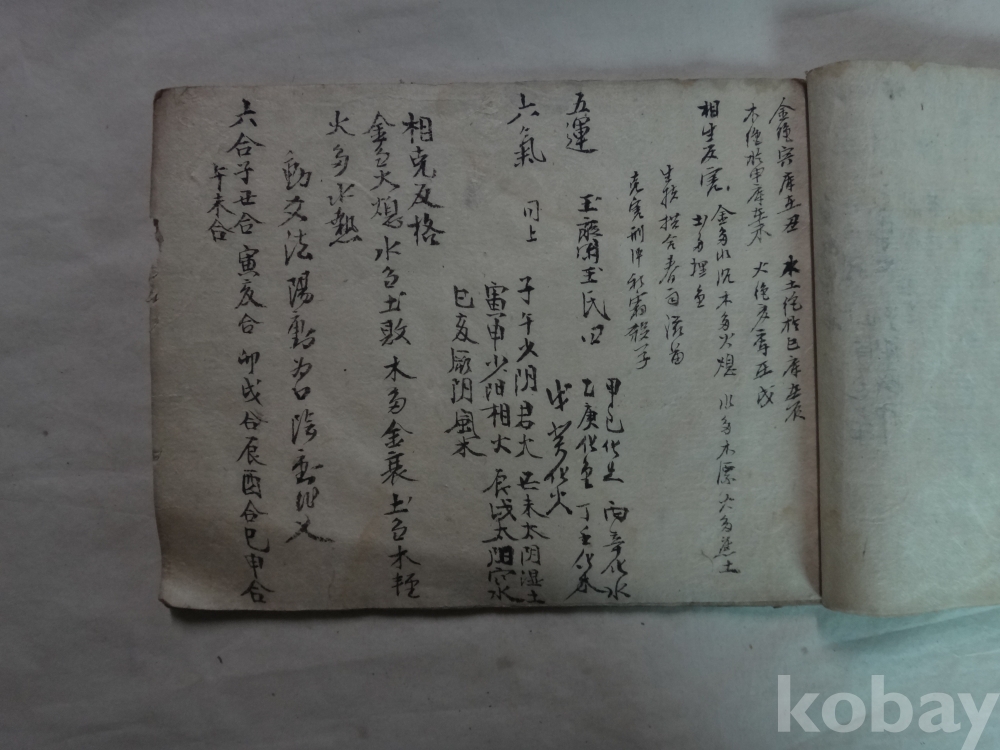 金絶寅庫在丑 水土絶於巳庫在辰
木絶於申庫在未 火絶亥庫在戌
相生反害 金多水沉木多火熄 水多木漂火多焦土
土多埋金
生扶拱合春雨滋苗
克害刑冲秋霜殺草
五運 玉龍 玉氏曰 甲己化土 丙辛化水
乙庚化金 丁壬化木
戊癸化火
六氣 同上 子午少阴君火 丑未太阴湿土
寅申少阳相火 辰戌太阳寒水
巳亥厥阴風木
相克反格
金多火熄水多土敗木多金衰土多木輕
火多水熱
動爻法陽動為口陰動非乂
六合子丑合 寅亥合 卯戌合辰酉合巳申合
午未合
kobay